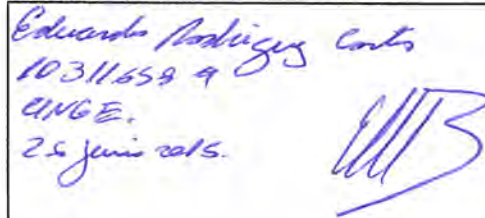 Eduardo Rodriguez Cortes
10311659 9
UNGE.
25 junio 2015.